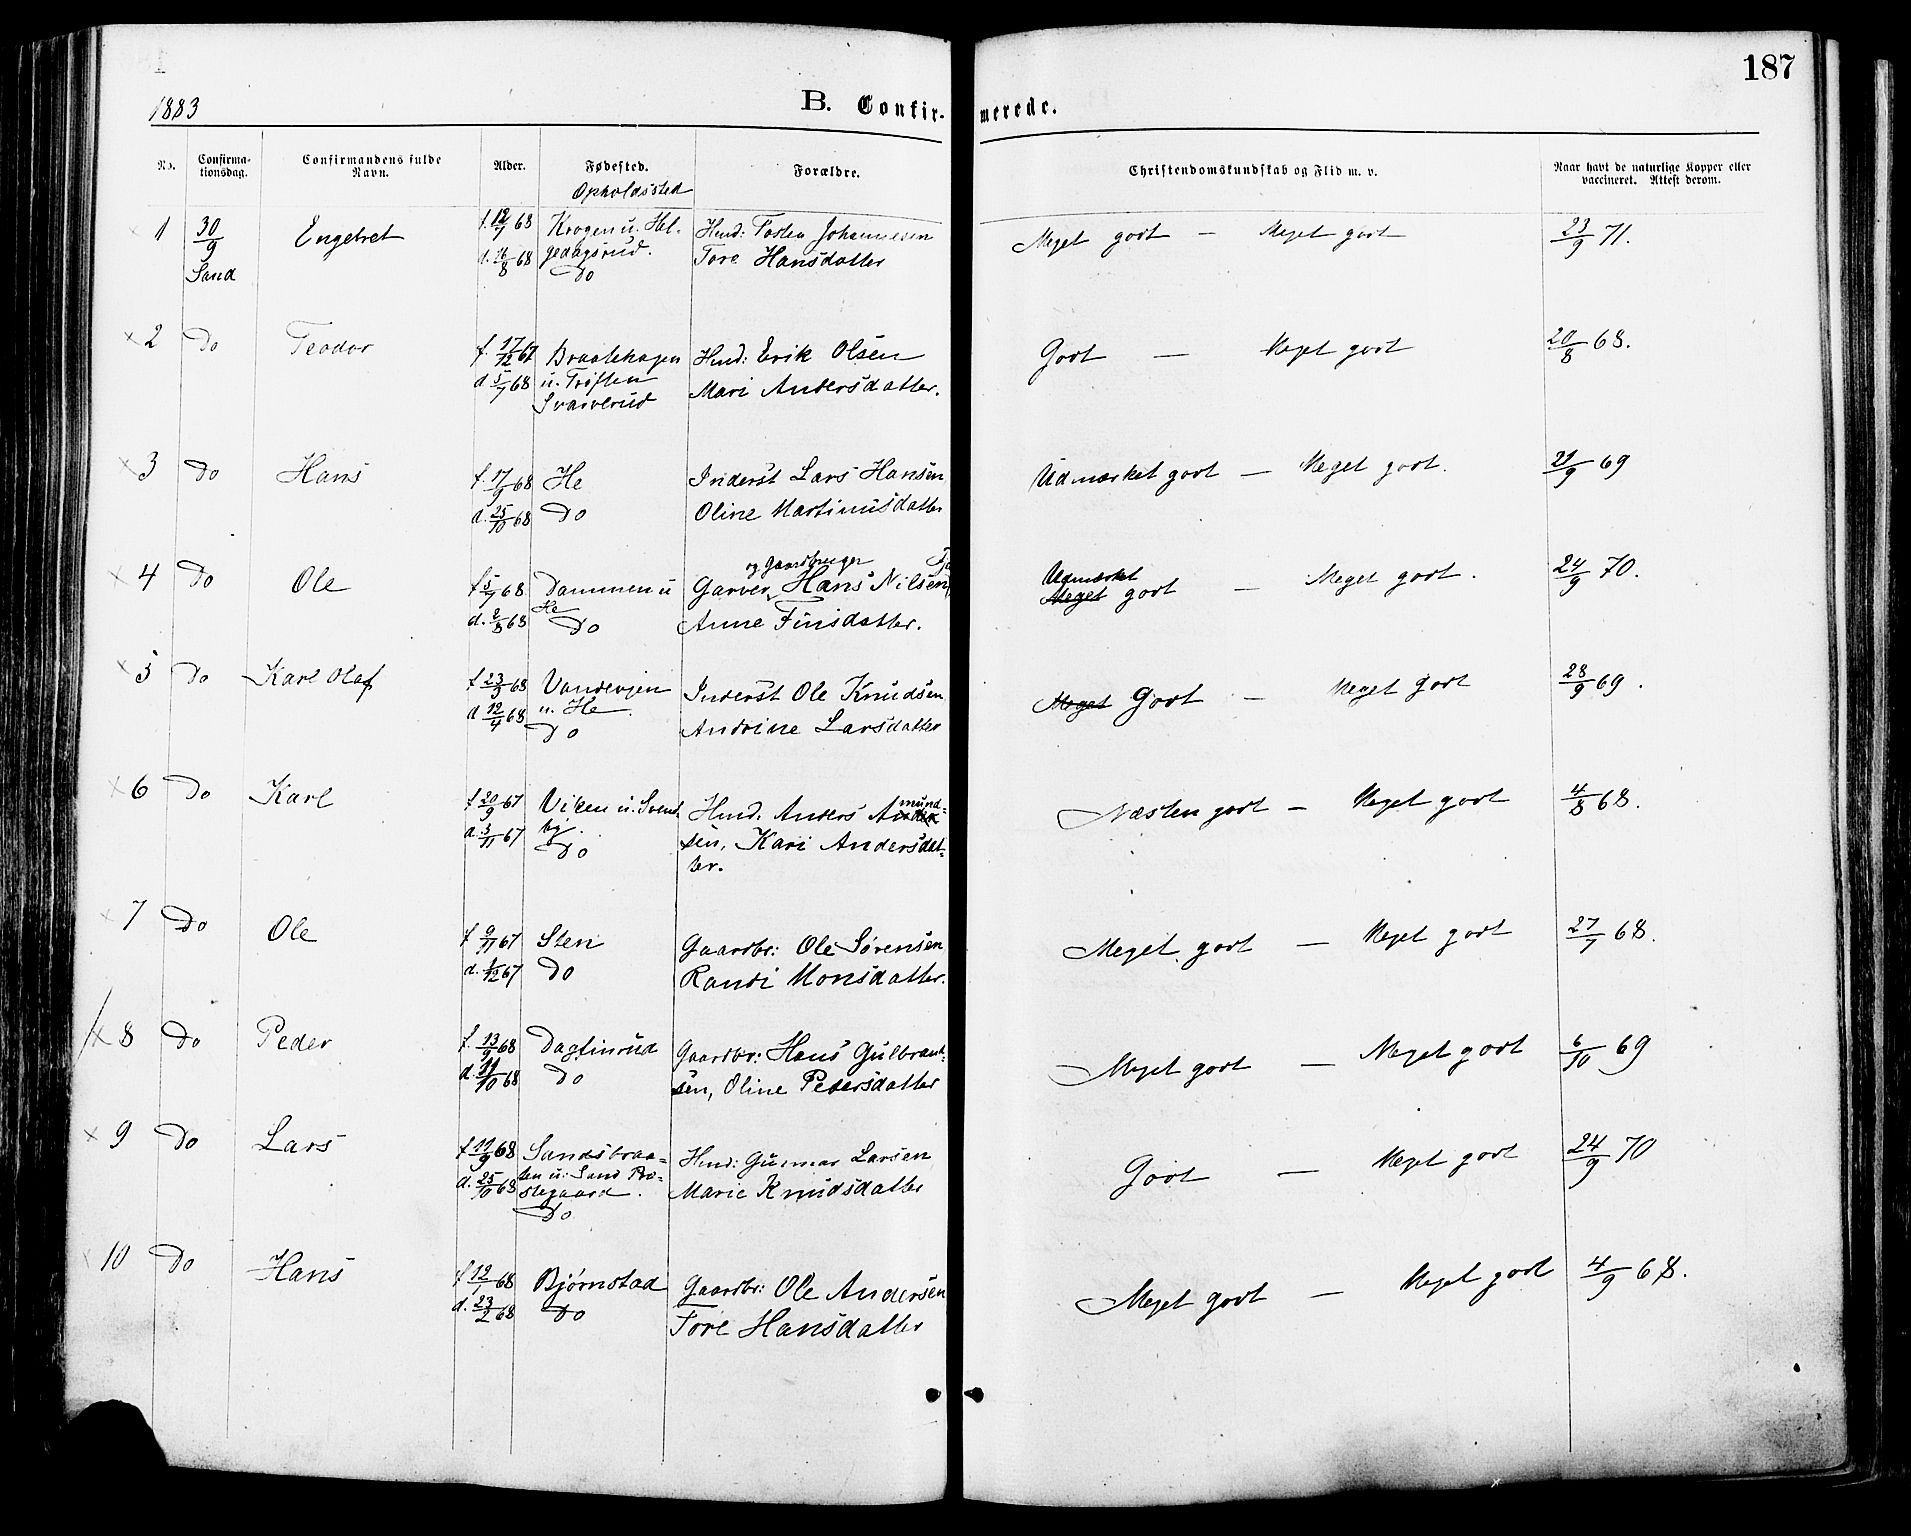 187
1883 B. Confir- merede.
No. Confirma-tionsdag. Confirmandens fulde Navn. Alder. Fødested. Opholdssted Forældre. Christendomskundskab og Flid m. v. Naar havt de naturlige Kopper eller vaccineret. Attest derom.
1 30/9 Engebret f. 12/7 68 Krogen u. Hel- Hmd: Tosten Johannesen Meget godt — Meget godt 23/9 71.
Sand d. 16/8 68 gedagsrud. Tore Hansdatter
Do
2 Do Teodor f. 17/12 67 Braatehagen Hmd: Erik Olsen Godt — Meget godt 20/8 68.
d 5/7 68 u. Trøften Mari Andersdatter.
Svarverud
3 Do Hans f. 17/9 68 He Inderst Lars Hansen Udmærket godt — Meget godt. 21/9 69
d. 25/10 68 Do Oline Martinusdatter
og Gaardbruger
4 Do Ole f 5/7 68 Dammen u Garver Hans Nilsen Udmærket Meget godt — Meget godt. 24/9 70.
d. 2/8 68 He Do Anne Finsdatter.
5 Do Karl Olaf f 23/2 68 Vandevjen Inderst Ole Knudsen Meget Godt — Meget godt 28/9 69.
d 12/4 68 u. He. Andrine Larsdatter
Do
6 Do Karl f 20/9 67 Viken u. Svend- Hmd. Anders Amund- Næsten godt — Meget godt 4/8 68.
d. 3/11 67 by. sen, Kari Andersdat-
Do ter.
7 Do Ole f 9/11 67 Sten Gaardbr: Ole Sørensen Meget godt — Meget godt 27/7 68.
d. 1/12 67 Do Randi Monsdatter.
8 Do Peder f. 13/9 68 Dagfinrud Gaardbr: Hans Gulbrand- Meget godt — Meget godt 6/10 69
d. 11/10 68 Do sen, Oline Pedersdatter
9 Do Lars f 11/9 68 Sandsbraa- Hmd: Gunnar Larsen Godt — Meget godt 24/9 70
d. 25/10 68 ten u. Sand Præ- Marie Knudsdatter
stegaard.
Do
10 Do Hans f 12/1 68 Bjørnstad Gaardbr: Ole Andersen Meget godt — Meget godt 4/9 68.
d. 23/2 68 Do Tore Hansdatter